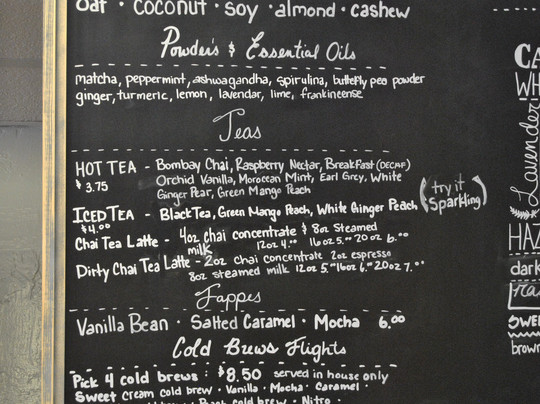 Oat · coconut · soy · almond · cashew
Powders & Essential Oils
matcha, peppermint, ashwagandha, spirulina, butterfly pea powder
ginger, turmeric, lemon, lavendar, lime, frankincense
Teas
HOT TEA - Bombay Chai, Raspberry Nectar, Breakfast (DECAF)
$3.75 Orchid Vanilla, Moroccan Mint, Earl Grey, White
Ginger Pear, Green Mango Peach
ICED TEA - Black Tea, Green Mango Peach, White Ginger Peach (try it sparkling)
$4.00
Chai Tea Latte - 4oz chai concentrate & 8oz steamed
milk 12oz 4.00 16oz 5.00 20oz 6.00
Dirty Chai Tea Latte - 2oz chai concentrate 2oz espresso
8oz steamed milk 12oz 5.00 16oz 6.00 20oz 7.00
Fappes
Vanilla Bean · Salted Caramel · Mocha 6.00
Cold Brews Flights
Pick 4 cold brews: $8.50 served in house only
Sweet cream cold brew · Vanilla · Mocha · Caramel ·
cold brew · Nitro ·
CA
WH
Lavender
HAZ
dark
SWE
brown